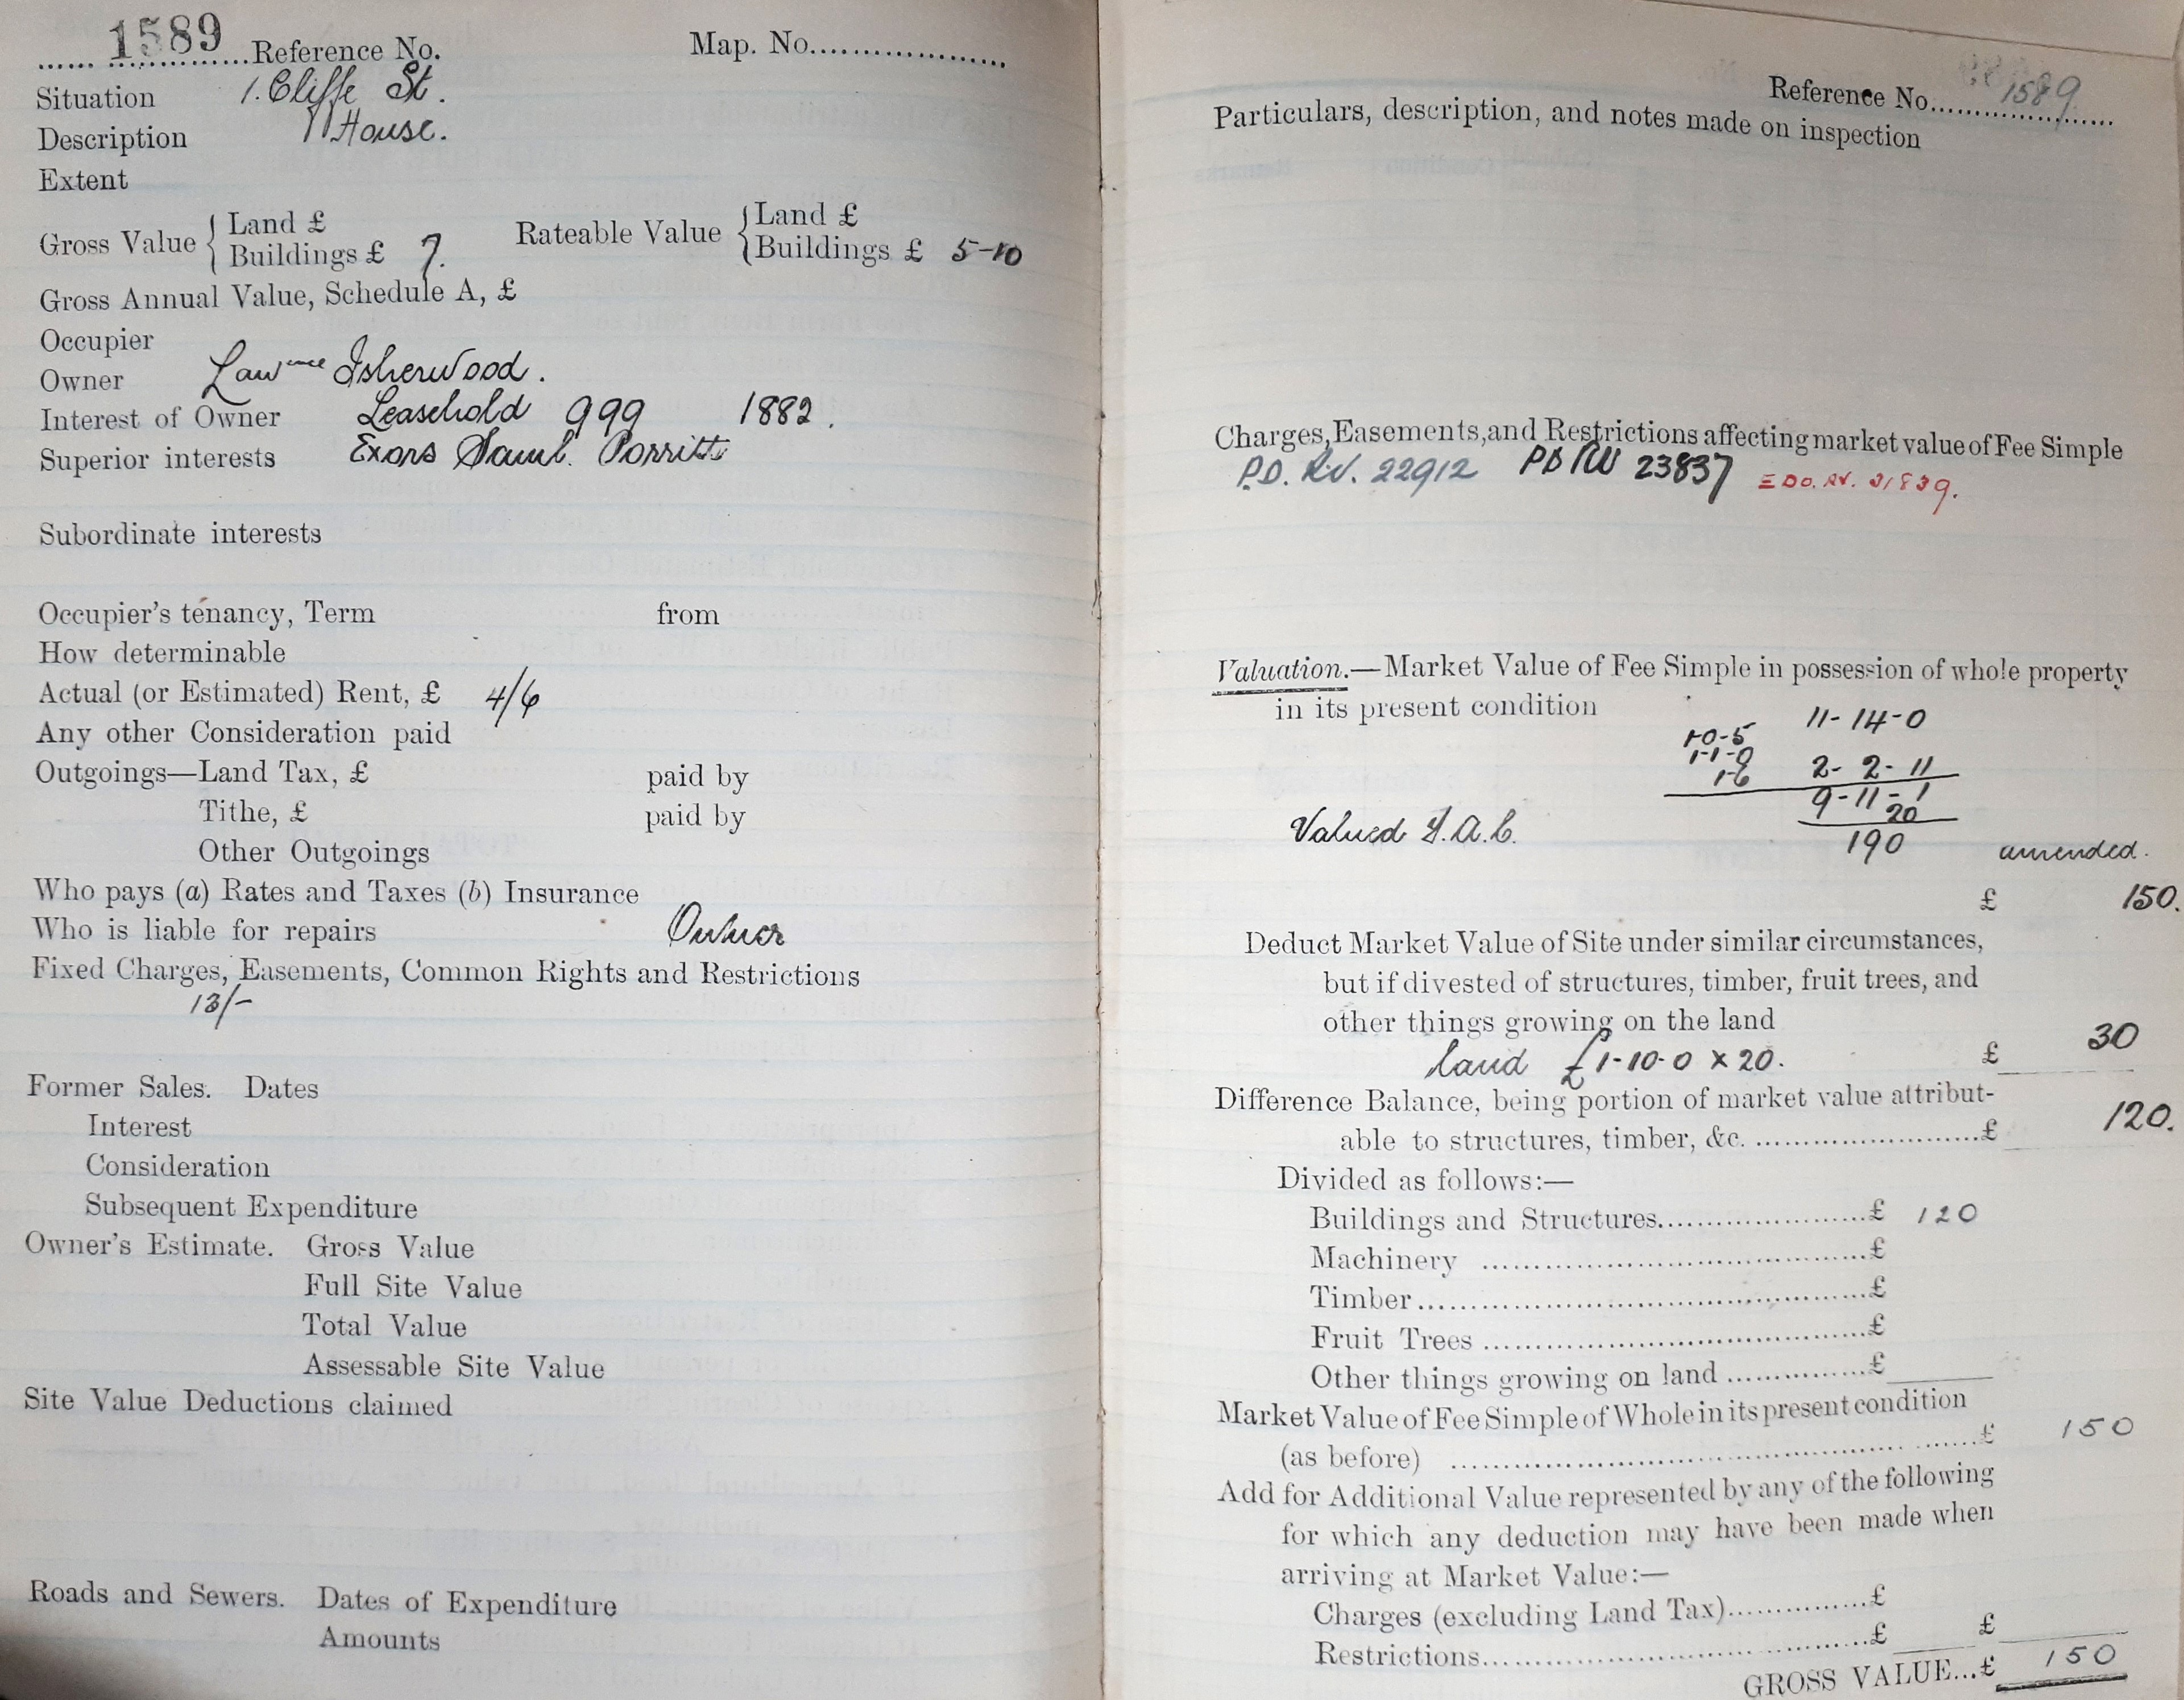 1589 Reference No. Map. No.
Situation 1. Cliffe St.
Description House.
Extent
Gross Value { Land £ Rateable Value { Land £
Buildings £ 7. Buildings £ 5-10
Gross Annual Value, Schedule A, £
Occupier
Owner Lawrence Isherwood.
Interest of Owner Leasehold 999 1882.
Superior interests Exors Saml. Porritt
Subordinate interests
Occupier's tenancy, Term from
How determinable
Actual (or Estimated) Rent, £ 4/6
Any other Consideration paid
Outgoings—Land Tax, £ paid by
Tithe, £ paid by
Other Outgoings
Who pays (a) Rates and Taxes (b) Insurance
Who is liable for repairs Owner
Fixed Charges, Easements, Common Rights and Restrictions
13/-
Former Sales. Dates
Interest
Consideration
Subsequent Expenditure
Owner's Estimate. Gross Value
Full Site Value
Total Value
Assessable Site Value
Site Value Deductions claimed
Roads and Sewers. Dates of Expenditure
Amounts
Reference No. 1589
Particulars, description, and notes made on inspection
Charges, Easements, and Restrictions affecting market value of Fee Simple
P.D. RV. 22912 PD RV 23837 EDO. RV. 31839.
Valuation.—Market Value of Fee Simple in possession of whole property
in its present condition
11-14-0
1-0-5
1-1-0
1-6 2-2-11
9-11-1
20
Valued 190 amended.
£ 150.
Deduct Market Value of Site under similar circumstances,
but if divested of structures, timber, fruit trees, and
other things growing on the land
land £1-10-0 x 20. £ 30
Difference Balance, being portion of market value attribut-
able to structures, timber, &c. £ 120.
Divided as follows:—
Buildings and Structures £ 120
Machinery £
Timber £
Fruit Trees £
Other things growing on land £
Market Value of Fee Simple of Whole in its present condition
(as before) £ 150
Add for Additional Value represented by any of the following
for which any deduction may have been made when
arriving at Market Value:—
Charges (excluding Land Tax) £
Restrictions £ £
GROSS VALUE...£ 150